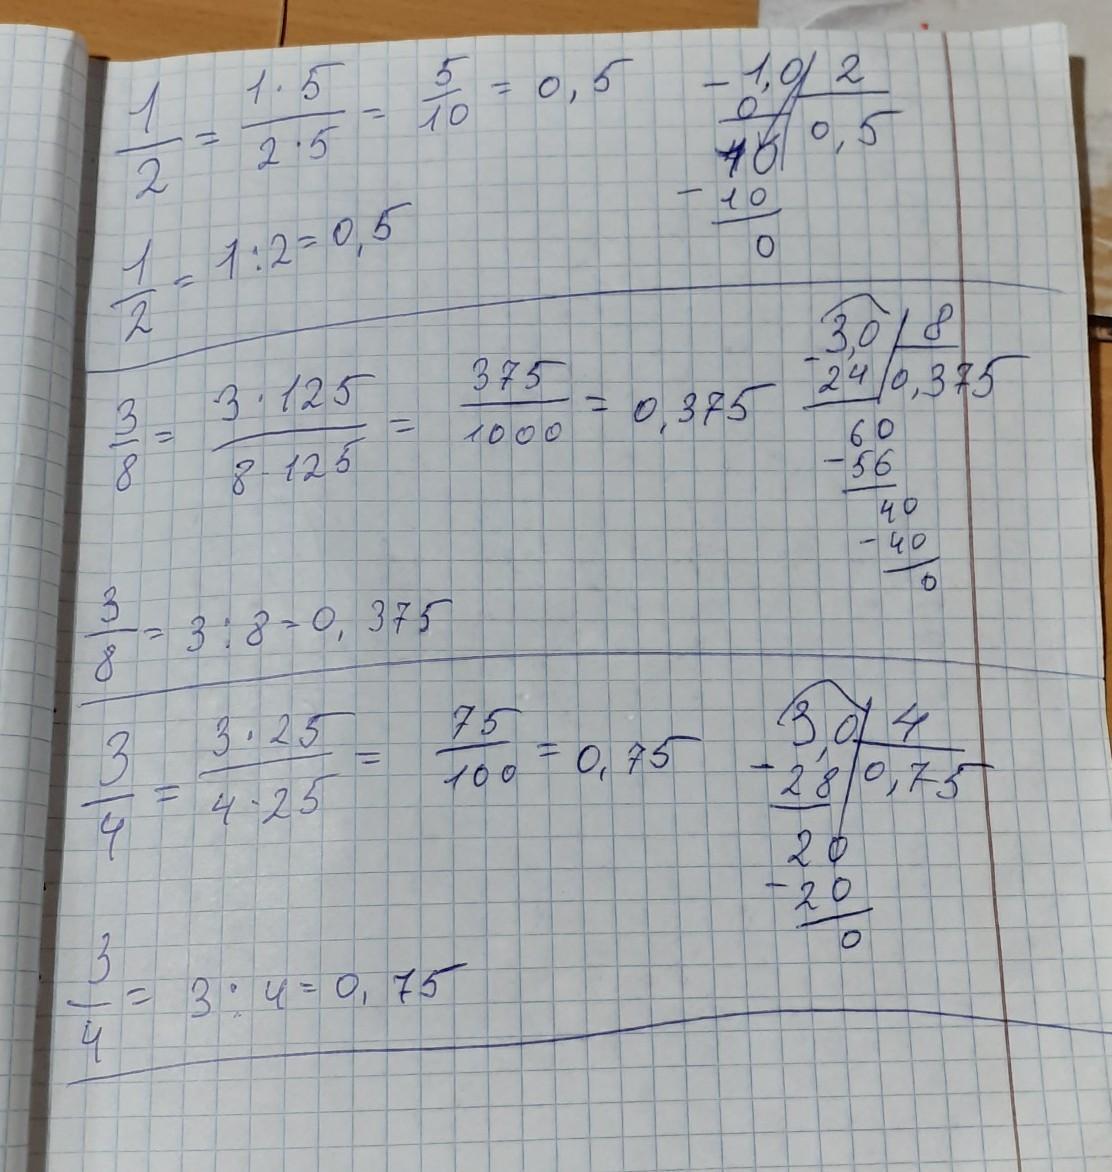 1/2 = 1·5/2·5 = 5/10 = 0,5
- 1,0 | 2
0 | 0,5
10
- 10
0
1/2 = 1:2 = 0,5
3/8 = 3·125/8·125 = 375/1000 = 0,375
- 3,0 | 8
24 | 0,375
60
- 56
40
- 40
0
3/8 = 3:8 = 0,375
3/4 = 3·25/4·25 = 75/100 = 0,75
- 3,0 | 4
28 | 0,75
20
- 20
0
3/4 = 3:4 = 0,75